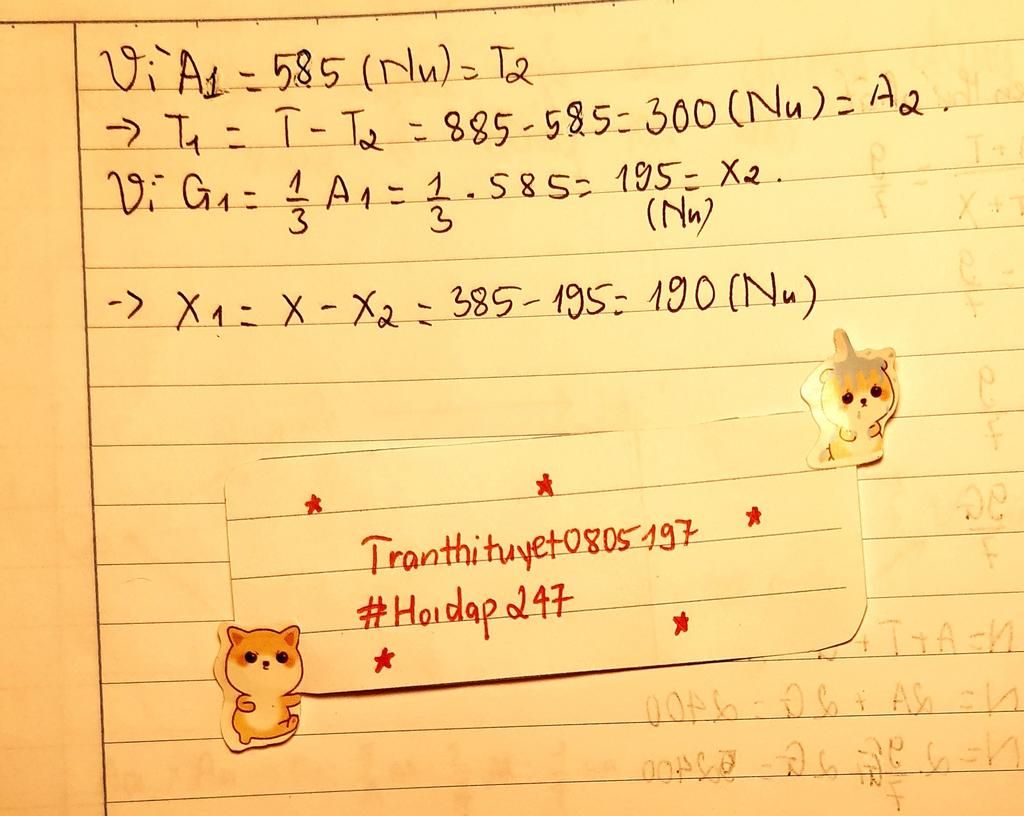 Vì A1 = 585 (Nu) = T2
-> T1 = T - T2 = 885 - 585 = 300 (Nu) = A2.
Vì G1 = 1/3 A1 = 1/3 . 585 = 195 = X2.
(Nu)
-> X1 = X - X2 = 385 - 195 = 190 (Nu)
Tranthituyet0805197
#Hoidap247